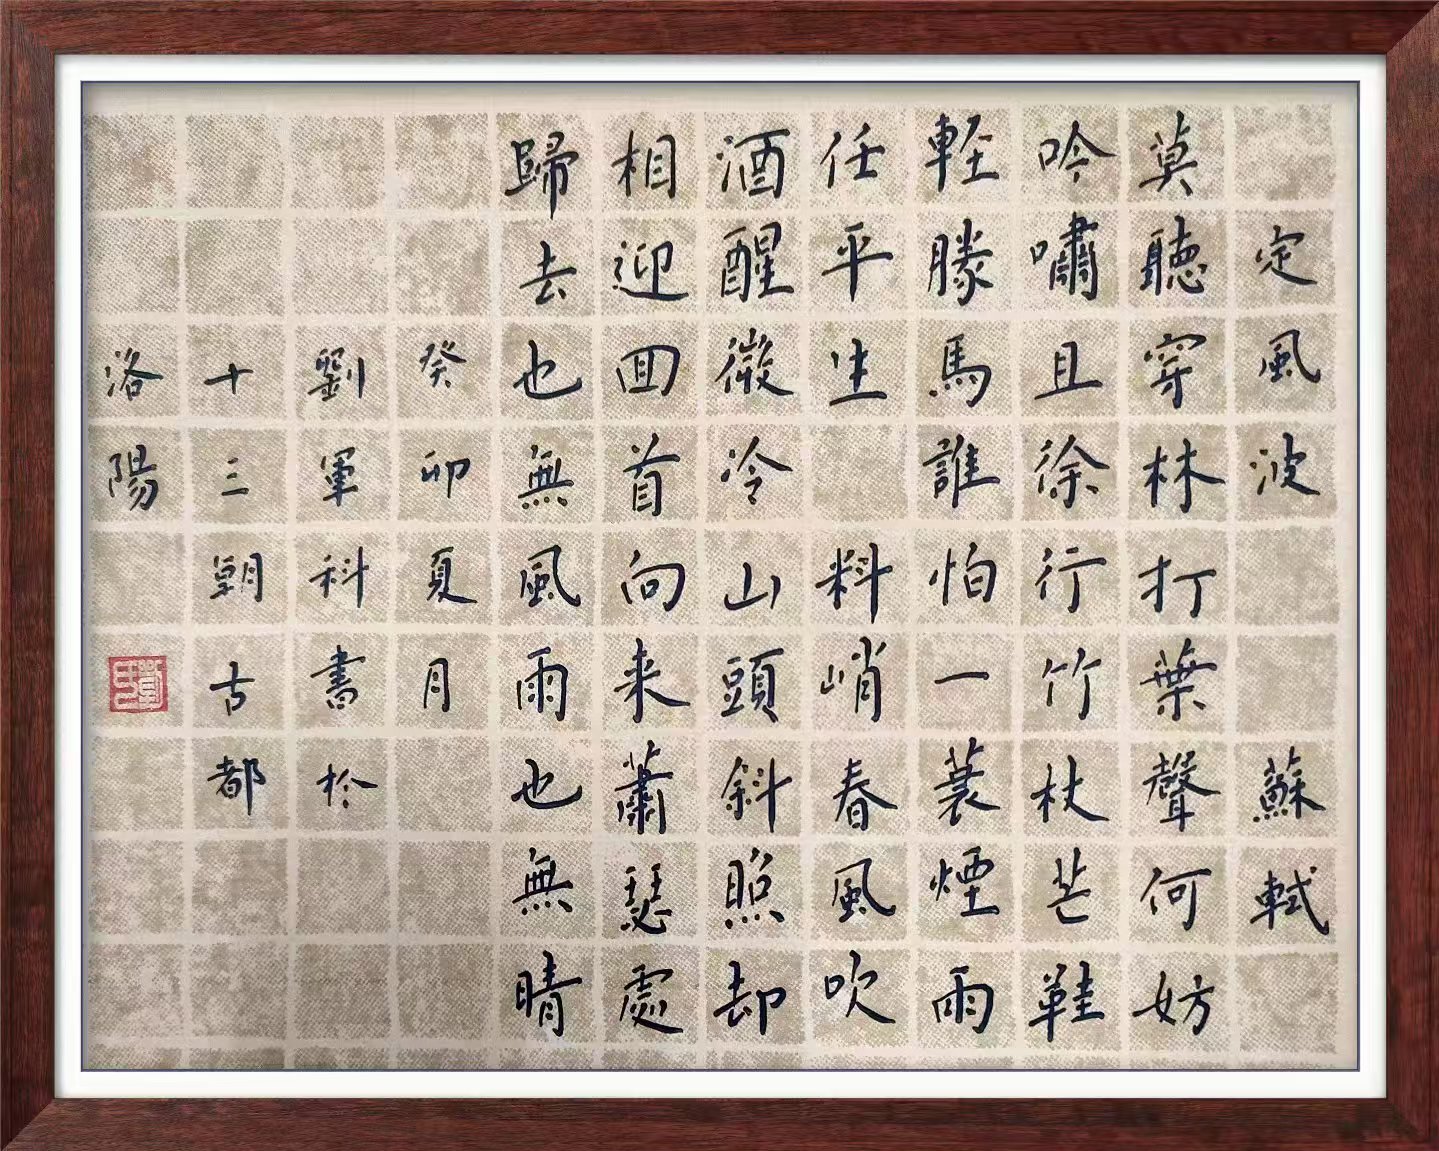 定風波 蘇軾
莫聽穿林打葉聲何妨
吟嘯且徐行竹杖芒鞋
輕勝馬誰怕一蓑煙雨
任平生 料峭春風吹
酒醒微冷山頭斜照却
相迎回首向来蕭瑟處
歸去也無風雨也無晴
癸卯夏月
劉軍科書於
十三朝古都
洛陽